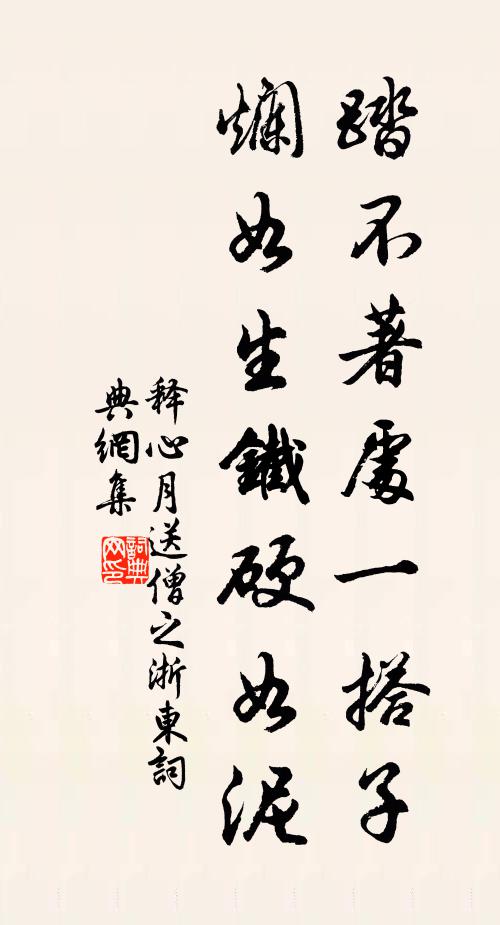 踏不著處一搭子
爛如生鐵硬如泥
释心月送僧之浙東詞
典網集
詞典
网印